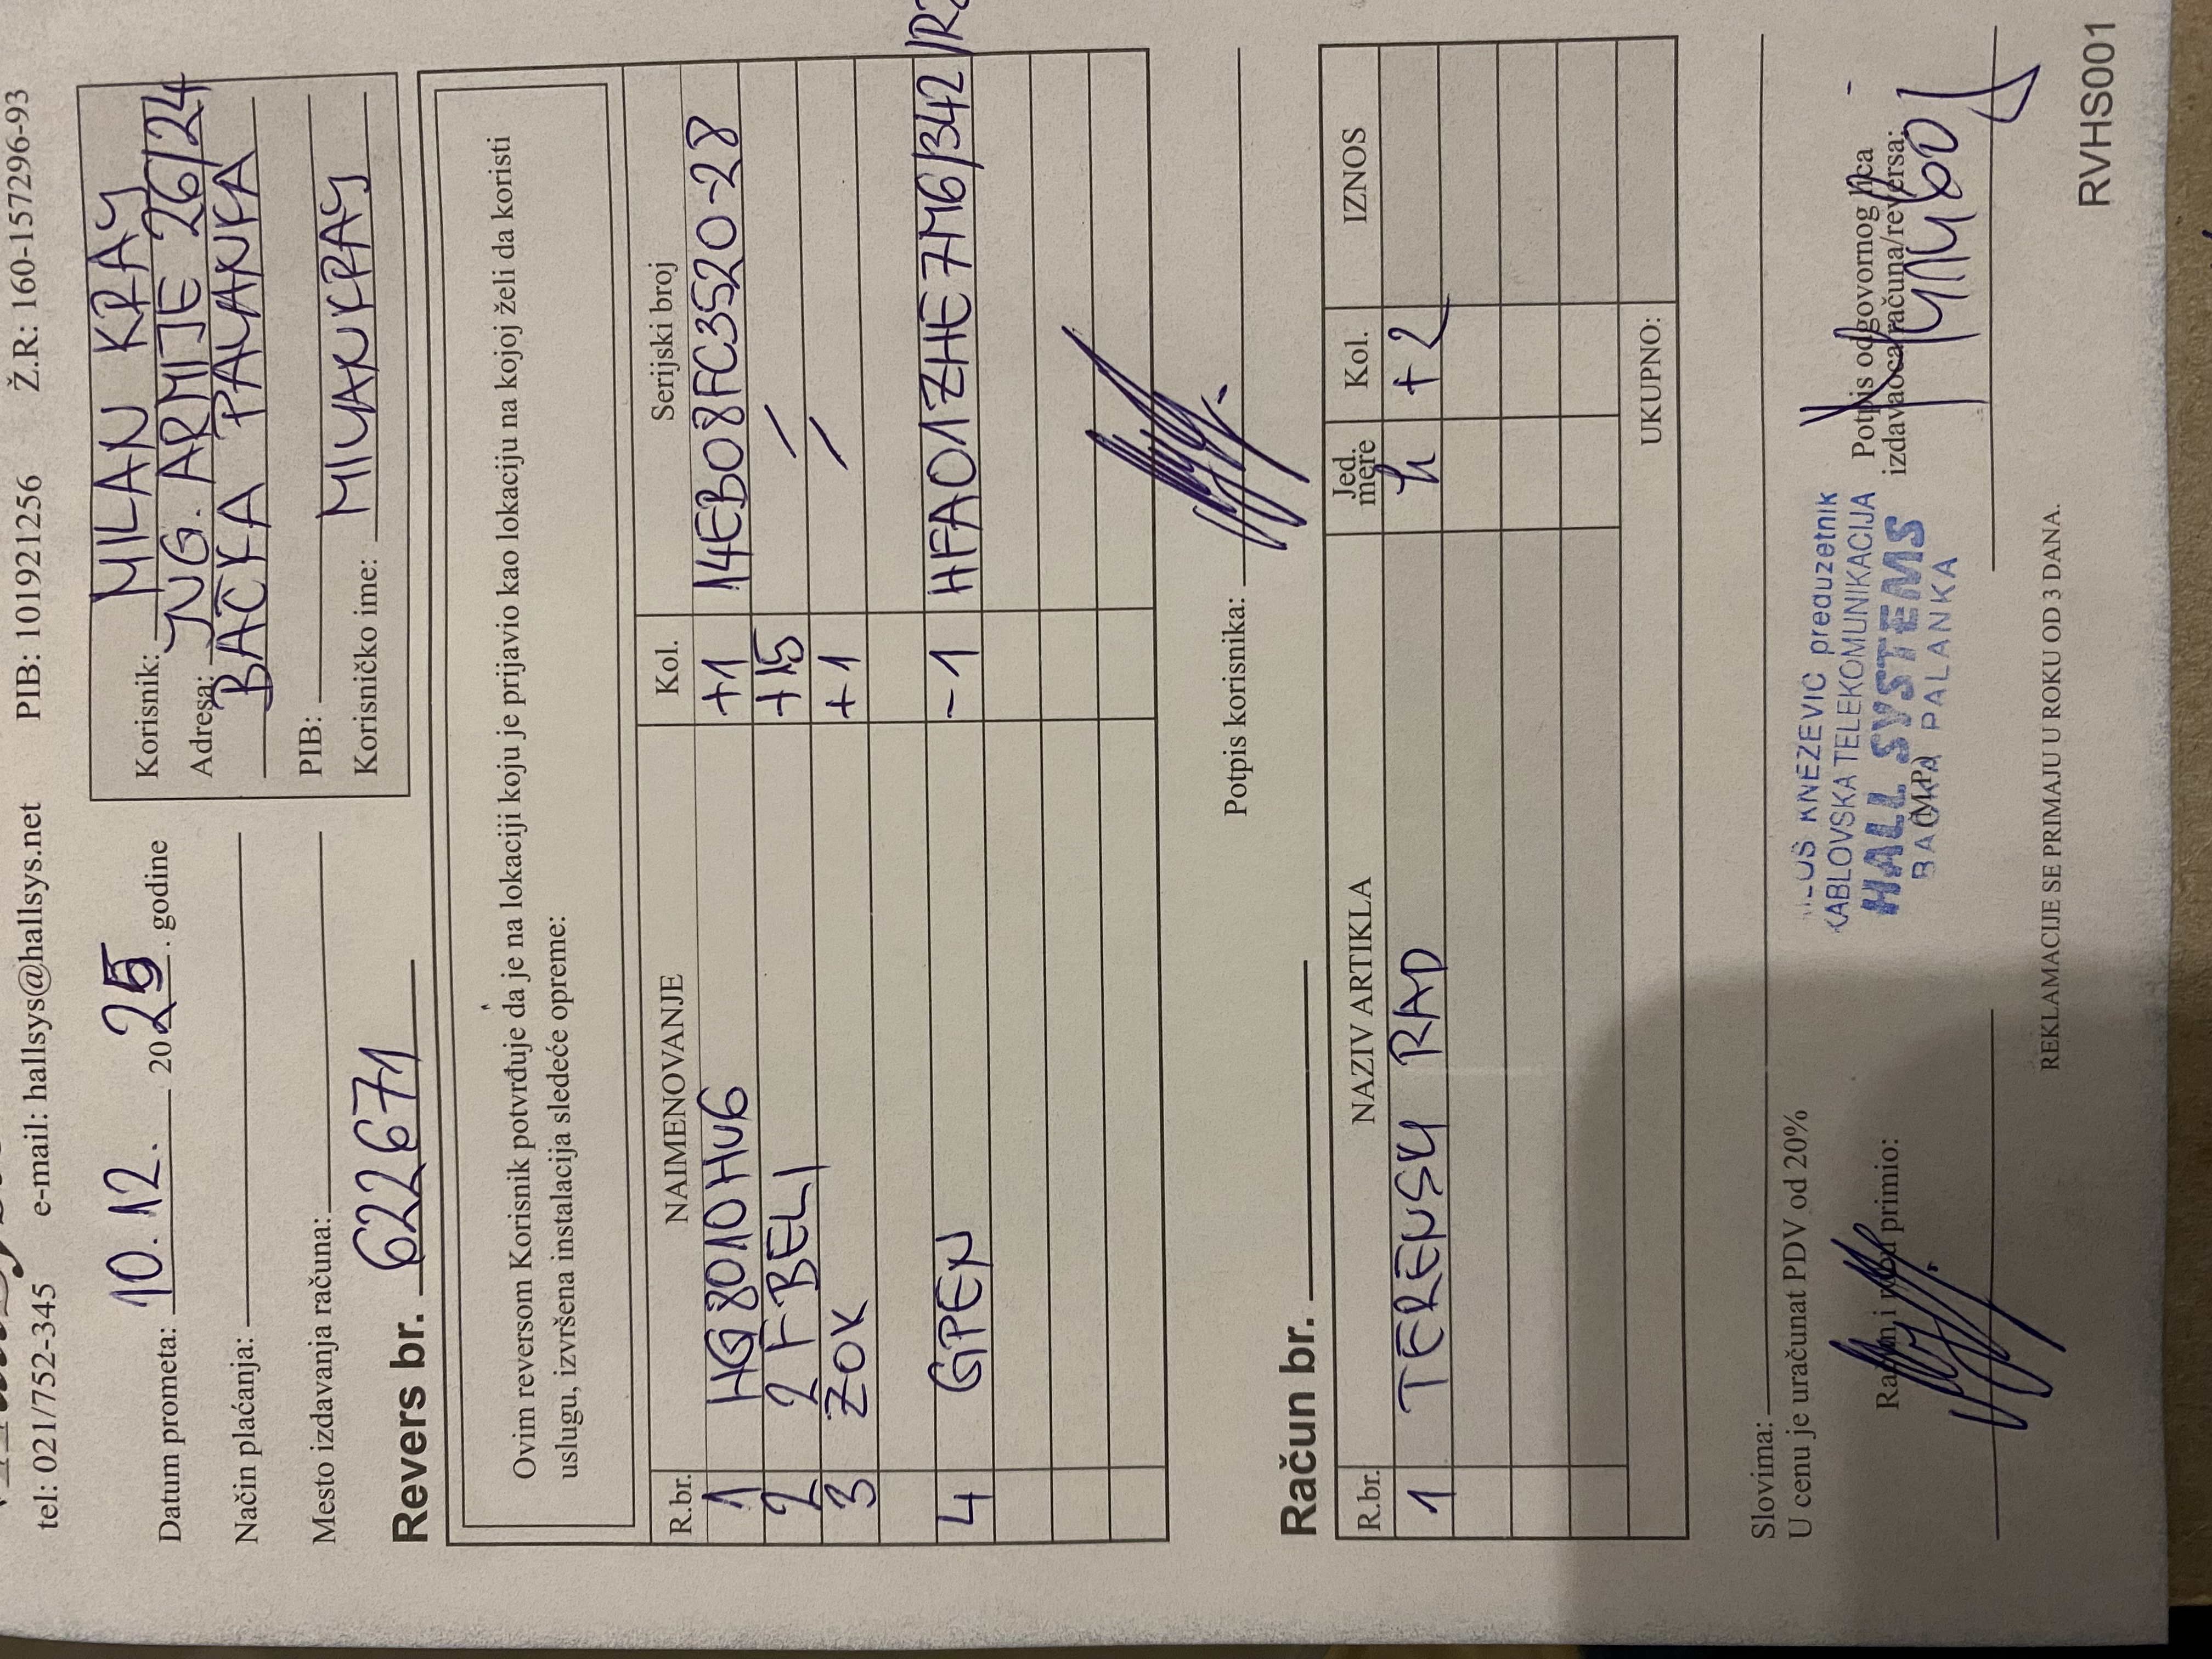 tel: 021/752-345 e-mail: hallsys@hallsys.net PIB: 101921256 Ž.R: 160-157296-93
Datum prometa: 10.12. 2025. godine
Način plaćanja:
Mesto izdavanja računa:
Korisnik: MILAN KRAJ
Adresa: JUG. ARMIJE 26/24
BAČKA PALANKA
PIB:
Korisničko ime: MILANKRAJ
Revers br. 622671
Ovim reversom Korisnik potvrđuje da je na lokaciji koju je prijavio kao lokaciju na kojoj želi da koristi
uslugu, izvršena instalacija sledeće opreme:
R.br. NAIMENOVANJE Kol. Serijski broj
1 HG8010Hu6 +1 14EB08FC3520-28
2 2 F BELI +15 /
3 ZOK +1 /
4 GPEN -1 HFA01ZHE7M6/342/R2
Potpis korisnika:
Račun br.
R.br. NAZIV ARTIKLA Jed. mere Kol. IZNOS
1 TERENSKI RAD h +2
UKUPNO:
Slovima:
U cenu je uračunat PDV od 20%
Račun i robu primio:
KNEZEVIĆ preduzetnik
KABLOVSKA TELEKOMUNIKACIJA
HALL SYSTEMS
BAČKA PALANKA
(M.P.)
Potpis odgovornog lica
izdavaoca računa/reversa:
REKLAMACIJE SE PRIMAJU U ROKU OD 3 DANA.
RVHS001